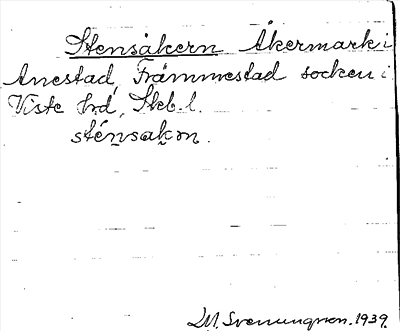 Stensåkern Åkermark i
Anestad, Främmestad socken i
Viste hrd, Skb. l.
sténsakɷn.
D.M. Svenungson. 1939.